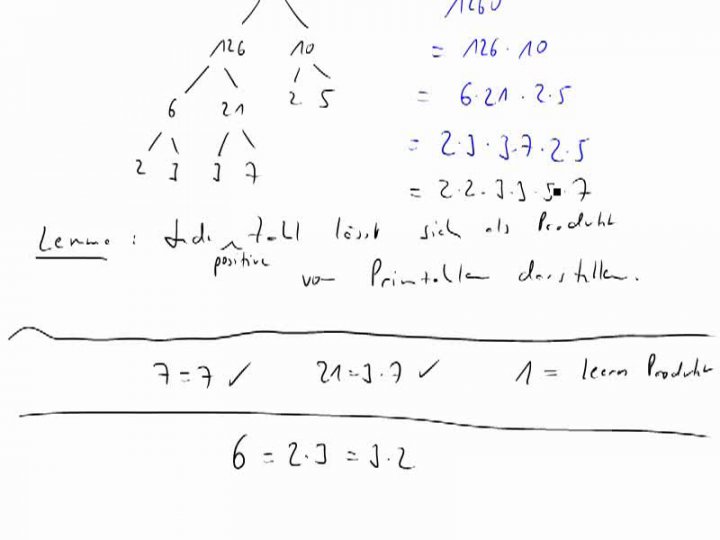 1260
126 10
= 126 · 10
6 21 2 5
= 6 · 21 · 2 · 5
2 3 3 7
= 2 · 3 · 3 · 7 · 2 · 5
= 2 · 2 · 3 · 3 · 5 · 7
Lemma: Jede positive Zahl lässt sich als Produkt
von Primzahlen darstellen.
7 = 7 ✓ 21 = 3 · 7 ✓ 1 = leeres Produkt
6 = 2 · 3 = 3 · 2